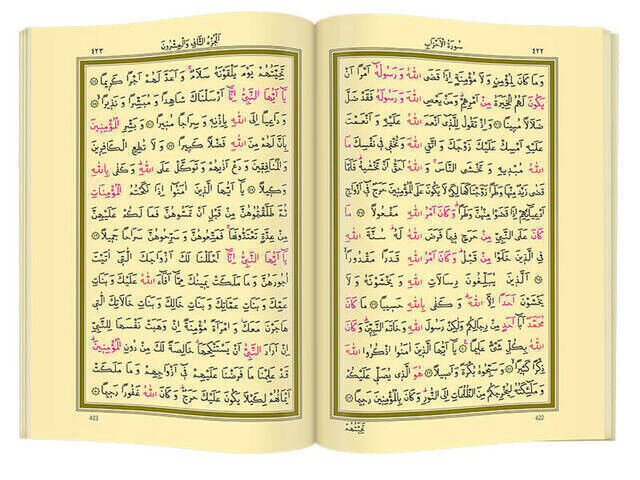 سُورَةُ الْاَحْزَابِ ٤٢٢
وَمَا كَانَ لِمُؤْمِنٍ وَلَا مُؤْمِنَةٍ اِذَا قَضَى اللّٰهُ وَرَسُولُهُٓ اَمْرًا اَنْ
يَكُونَ لَهُمُ الْخِيَرَةُ مِنْ اَمْرِهِمْ وَمَنْ يَعْصِ اللّٰهَ وَرَسُولَهُ فَقَدْ ضَلَّ
ضَلَالًا مُبِينًا وَاِذْ تَقُولُ لِلَّذِٓي اَنْعَمَ اللّٰهُ عَلَيْهِ وَاَنْعَمْتَ
عَلَيْهِ اَمْسِكْ عَلَيْكَ زَوْجَكَ وَاتَّقِ اللّٰهَ وَتُخْفِي فِي نَفْسِكَ مَا
اللّٰهُ مُبْدِيهِ وَتَخْشَى النَّاسَ وَاللّٰهُ اَحَقُّ اَنْ تَخْشٰيهُ فَلَمَّا
قَضٰى زَيْدٌ مِنْهَا وَطَرًا زَوَّجْنَاكَهَا لِكَيْ لَا يَكُونَ عَلَى الْمُؤْمِنِينَ حَرَجٌ فِٓي اَزْوَاجِ
اَدْعِيَٓائِهِمْ اِذَا قَضَوْا مِنْهُنَّ وَطَرًا وَكَانَ اَمْرُ اللّٰهِ مَفْعُولًا مَا
كَانَ عَلَى النَّبِيِّ مِنْ حَرَجٍ فِيمَا فَرَضَ اللّٰهُ لَهُ سُنَّةَ اللّٰهِ
فِي الَّذِينَ خَلَوْا مِنْ قَبْلُ وَكَانَ اَمْرُ اللّٰهِ قَدَرًا مَقْدُورًا
اَلَّذِينَ يُبَلِّغُونَ رِسَالَاتِ اللّٰهِ وَيَخْشَوْنَهُ وَلَا
يَخْشَوْنَ اَحَدًا اِلَّا اللّٰهَ وَكَفٰى بِاللّٰهِ حَسِيبًا مَا كَانَ
مُحَمَّدٌ اَبَٓا اَحَدٍ مِنْ رِجَالِكُمْ وَلٰكِنْ رَسُولَ اللّٰهِ وَخَاتَمَ النَّبِيِّنَ وَكَانَ
اللّٰهُ بِكُلِّ شَيْءٍ عَلِيمًا يَٓا اَيُّهَا الَّذِينَ اٰمَنُوا اذْكُرُوا اللّٰهَ
ذِكْرًا كَثِيرًا وَسَبِّحُوهُ بُكْرَةً وَاَصِيلًا هُوَ الَّذِي يُصَلِّي عَلَيْكُمْ
وَمَلٰٓئِكَتُهُ لِيُخْرِجَكُمْ مِنَ الظُّلُمَاتِ اِلَى النُّورِ وَكَانَ بِالْمُؤْمِنِينَ رَحِيمًا
422
تَحِيَّتُهُمْ
اَلْجُزْءُ الثَّانِي وَالْعِشْرُونَ ٤٢٣
تَحِيَّتُهُمْ يَوْمَ يَلْقَوْنَهُ سَلَامٌ وَاَعَدَّ لَهُمْ اَجْرًا كَرِيمًا
يَٓا اَيُّهَا النَّبِيُّ اِنَّٓا اَرْسَلْنَاكَ شَاهِدًا وَمُبَشِّرًا وَنَذِيرًا
وَدَاعِيًا اِلَى اللّٰهِ بِاِذْنِهِ وَسِرَاجًا مُنِيرًا وَبَشِّرِ الْمُؤْمِنِينَ
بِاَنَّ لَهُمْ مِنَ اللّٰهِ فَضْلًا كَبِيرًا وَلَا تُطِعِ الْكَافِرِينَ
وَالْمُنَافِقِينَ وَدَعْ اَذٰيهُمْ وَتَوَكَّلْ عَلَى اللّٰهِ وَكَفٰى بِاللّٰهِ
وَكِيلًا يَٓا اَيُّهَا الَّذِينَ اٰمَنُٓوا اِذَا نَكَحْتُمُ الْمُؤْمِنَاتِ
ثُمَّ طَلَّقْتُمُوهُنَّ مِنْ قَبْلِ اَنْ تَمَسُّوهُنَّ فَمَا لَكُمْ عَلَيْهِنَّ
مِنْ عِدَّةٍ تَعْتَدُّونَهَا فَمَتِّعُوهُنَّ وَسَرِّحُوهُنَّ سَرَاحًا جَمِيلًا
يَٓا اَيُّهَا النَّبِيُّ اِنَّٓا اَحْلَلْنَا لَكَ اَزْوَاجَكَ الّٰتِٓي اٰتَيْتَ
اُجُورَهُنَّ وَمَا مَلَكَتْ يَمِينُكَ مِمَّٓا اَفَٓاءَ اللّٰهُ عَلَيْكَ وَبَنَاتِ
عَمِّكَ وَبَنَاتِ عَمَّاتِكَ وَبَنَاتِ خَالِكَ وَبَنَاتِ خَالَاتِكَ الّٰتِي
هَاجَرْنَ مَعَكَ وَامْرَاَةً مُؤْمِنَةً اِنْ وَهَبَتْ نَفْسَهَا لِلنَّبِيِّ
اِنْ اَرَادَ النَّبِيُّ اَنْ يَسْتَنْكِحَهَا خَالِصَةً لَكَ مِنْ دُونِ الْمُؤْمِنِينَ
قَدْ عَلِمْنَا مَا فَرَضْنَا عَلَيْهِمْ فِٓي اَزْوَاجِهِمْ وَمَا مَلَكَتْ
اَيْمَانُهُمْ لِكَيْلَا يَكُونَ عَلَيْكَ حَرَجٌ وَكَانَ اللّٰهُ غَفُورًا رَحِيمًا
423